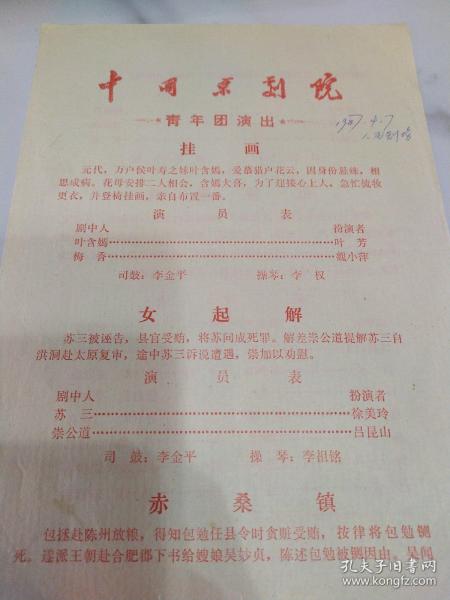 中国京剧院
★青年团演出★
1987.4.7
人民剧场
挂 画
元代，万户侯叶寿之妹叶含嫣，爱慕猎户花云，因身份悬殊，相
思成病。花母安排二人相会，含嫣大喜，为了迎接心上人，急忙梳妆
更衣，并登椅挂画，亲自布置一番。
演 员 表
剧中人 扮演者
叶含嫣……叶 芳
梅 香……魏小萍
司鼓：李金平 操琴：李 权
女 起 解
苏三被诬告，县官受贿，将苏问成死罪。解差崇公道提解苏三自
洪洞赴太原复审，途中苏三诉说遭遇，崇加以劝慰。
演 员 表
剧中人 扮演者
苏 三……徐美玲
崇公道……吕昆山
司 鼓：李金平 操 琴：李祖铭
赤 桑 镇
包拯赴陈州放粮，得知包勉任县令时贪赃受贿，按律将包勉铡
死。遂派王朝赴合肥郡下书给嫂娘吴妙贞，陈述包勉被铡因由。吴闻
孔夫子旧书网